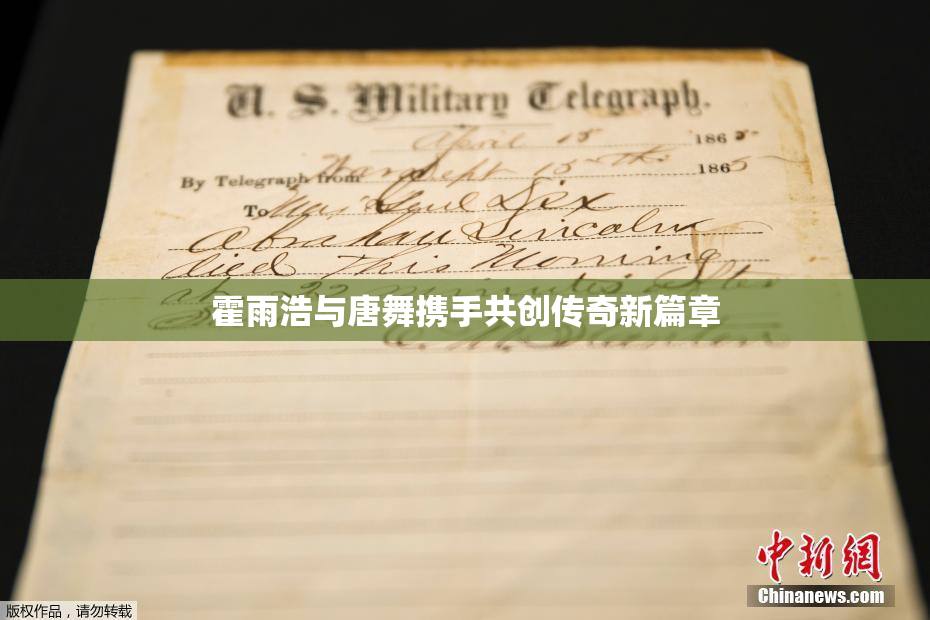 U. S. Military Telegraph.
April 15 1865
By Telegraph from War Dept 15th 1865
To Maj Genl Dix
Abraham Lincoln
died This Morning
at 22 minutes after
霍雨浩与唐舞携手共创传奇新篇章
E. M. Stanton
中新网
Chinanews.com
版权作品,请勿转载